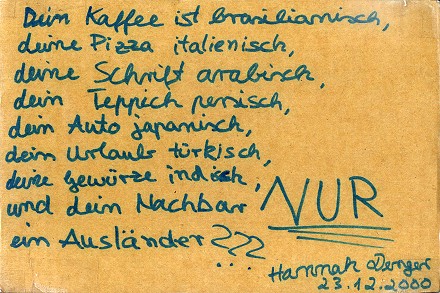 Dein Kaffee ist brasilianisch,
deine Pizza italienisch,
deine Schrift arabisch,
dein Teppich persisch,
dein Auto japanisch,
dein Urlaub türkisch,
deine Gewürze indisch,
und dein Nachbar NUR
ein Ausländer???
Hannah
23.12.2000